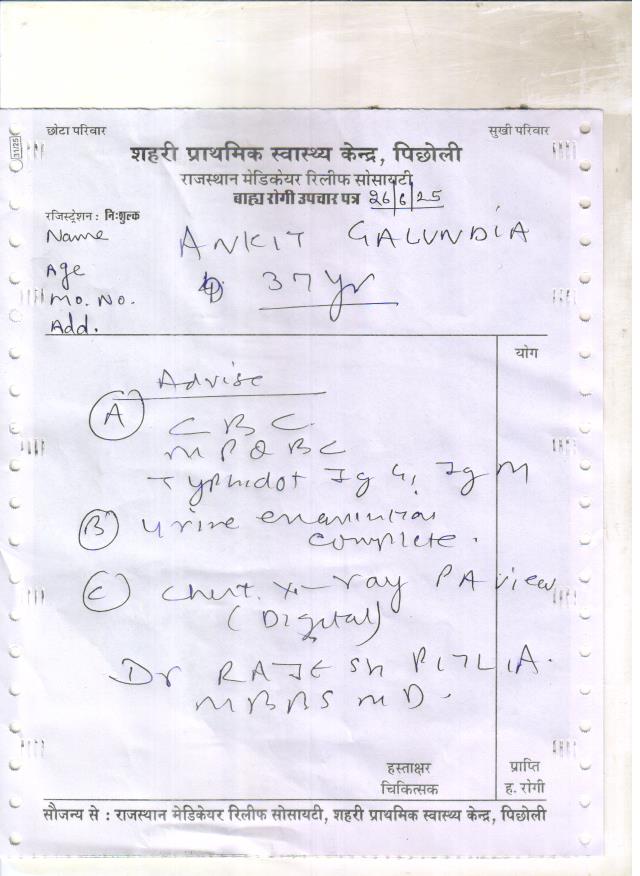 31/25
छोटा परिवार सुखी परिवार
शहरी प्राथमिक स्वास्थ्य केन्द्र, पिछोली
राजस्थान मेडिकेयर रिलीफ सोसायटी
बाह्य रोगी उपचार पत्र 26/6/25
रजिस्ट्रेशन : निःशुल्क
Name ANKIT GALUNDIA
Age 37 yr
Mo. No.
Add.
योग
Advise
(A) CBC
MP QBC
Typhidot IgG, IgM
(B) Urine
complete.
(C) Chest. X-ray PA view
(Digital)
Dr RAJESH
MBBS MD.
हस्ताक्षर प्राप्ति
चिकित्सक ह. रोगी
सौजन्य से : राजस्थान मेडिकेयर रिलीफ सोसायटी, शहरी प्राथमिक स्वास्थ्य केन्द्र, पिछोली